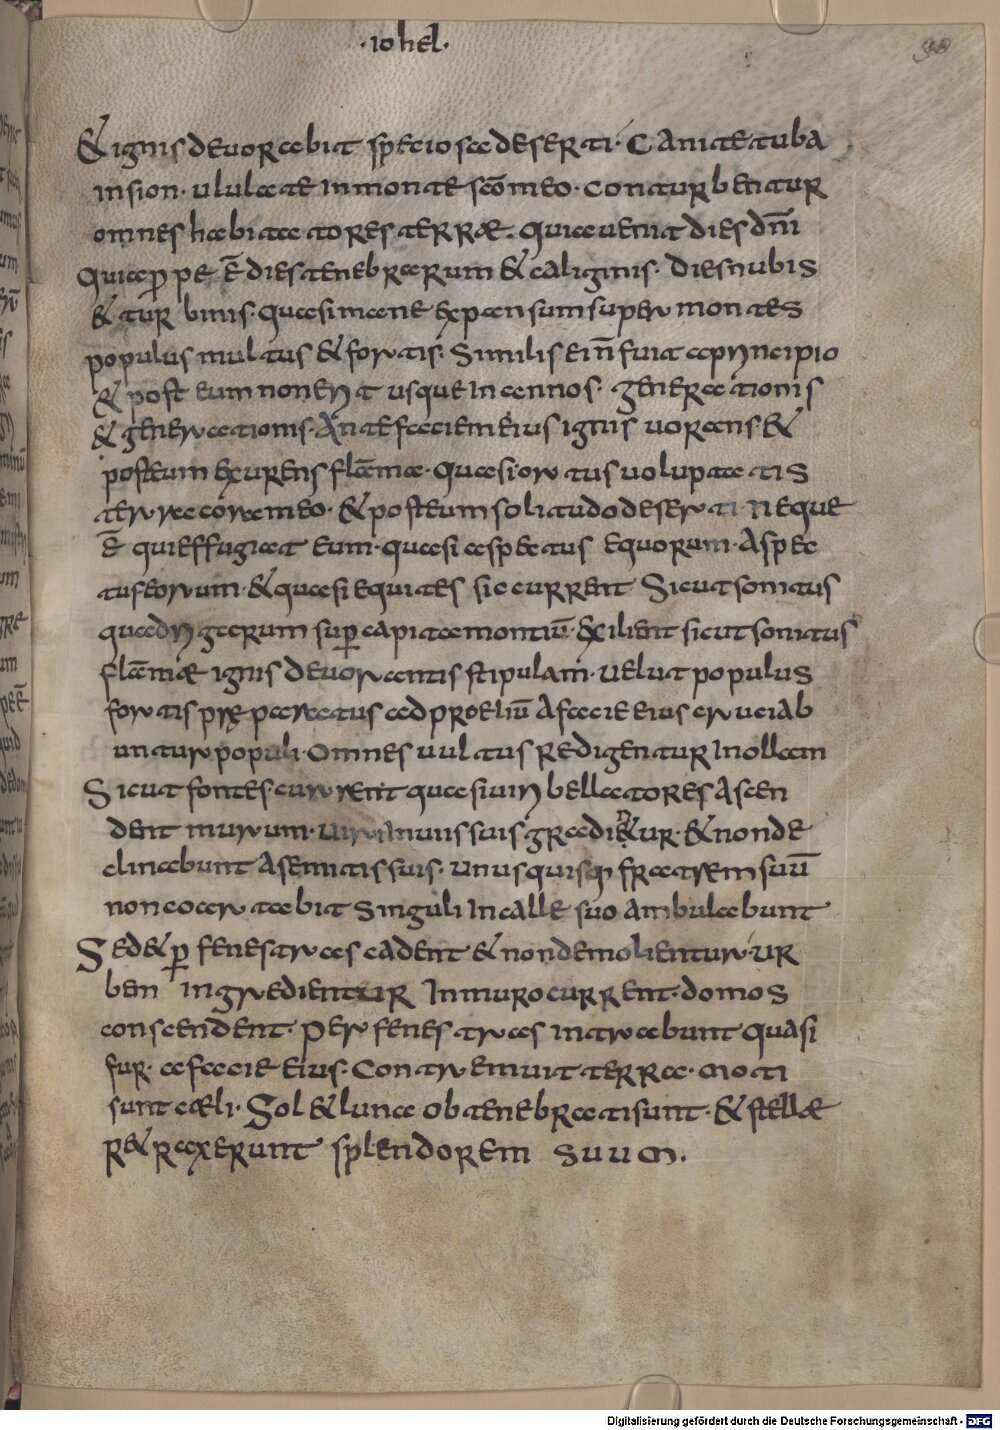 ·iohel·
98
& ignis deuorabit speciosa deserti· Canite tuba
in sion· ululate in monte sc̄o meo· conturbentur
omnes habitatores terræ· quia uenit dies dn̄i
quia ꝓpe ē dies tenebrarum & caliginis· Dies nubis
& turbinis· quasi mane expansum super montes
populus multus & fortis· Similis ei n̄ fuit a principio
& post eum non erit usque in annos· generationis
& generationis· Ante faciem eius ignis uorans &
post eum exurens flamma· quasi ortus uoluptatis
terra coram eo· & post eum solitudo deserti Neque
ē qui effugiat eum· quasi aspectus equorum· Aspec
tus eorum· & quasi equites sic current Sicut sonitus
quadrigarum suꝑ capita montiū· Exilient sicut sonitus
flammæ ignis deuorantis stipulam· uelut populus
fortis pręparatus ad proeliū A facie eius cruciab
untur populi· Omnes uultus redigentur in ollam
Sicut fontes current quasi uiri bellatores Ascen
dent murum· uiri in uiis suis gradi&ur· & non de
clinabunt A semitis suis· unusquisq; fratrem suū
non coartabit Singuli in calle suo ambulabunt
Sed & ꝑ fenestras cadent & non demolientur· ur
bem ingredientur In muro current· domos
conscendent· Per fenestras intrabunt quasi
fur· a facie eius· Contremuit terra· moti
sunt cæli· Sol & luna obtenebrati sunt· & stellæ
r&raxerunt splendorem suum.
Digitalisierung gefördert durch die Deutsche Forschungsgemeinschaft - DFG